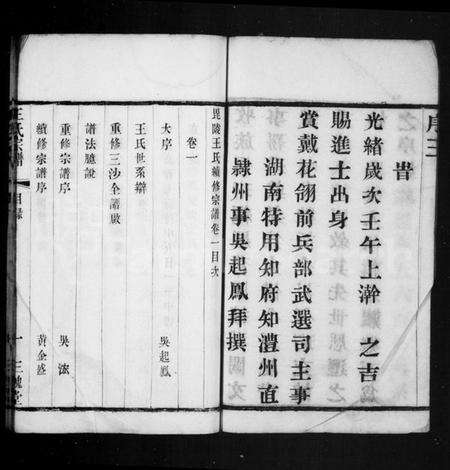 序三
昔
光緒歲次壬午上澣 之吉
賜進士出身
賞戴花翎前兵部武選司主事
湖南特用知府知澧州直
隸州事吳起鳳拜撰
毘陵王氏續修宗譜卷一目次
卷一
大序 吳起鳳
王氏世系辯
重修三沙全譜啟
譜法臆說
重修宗譜序 吳浤
續修宗譜序 黃金盛
王氏宗譜 目錄 十 三槐堂